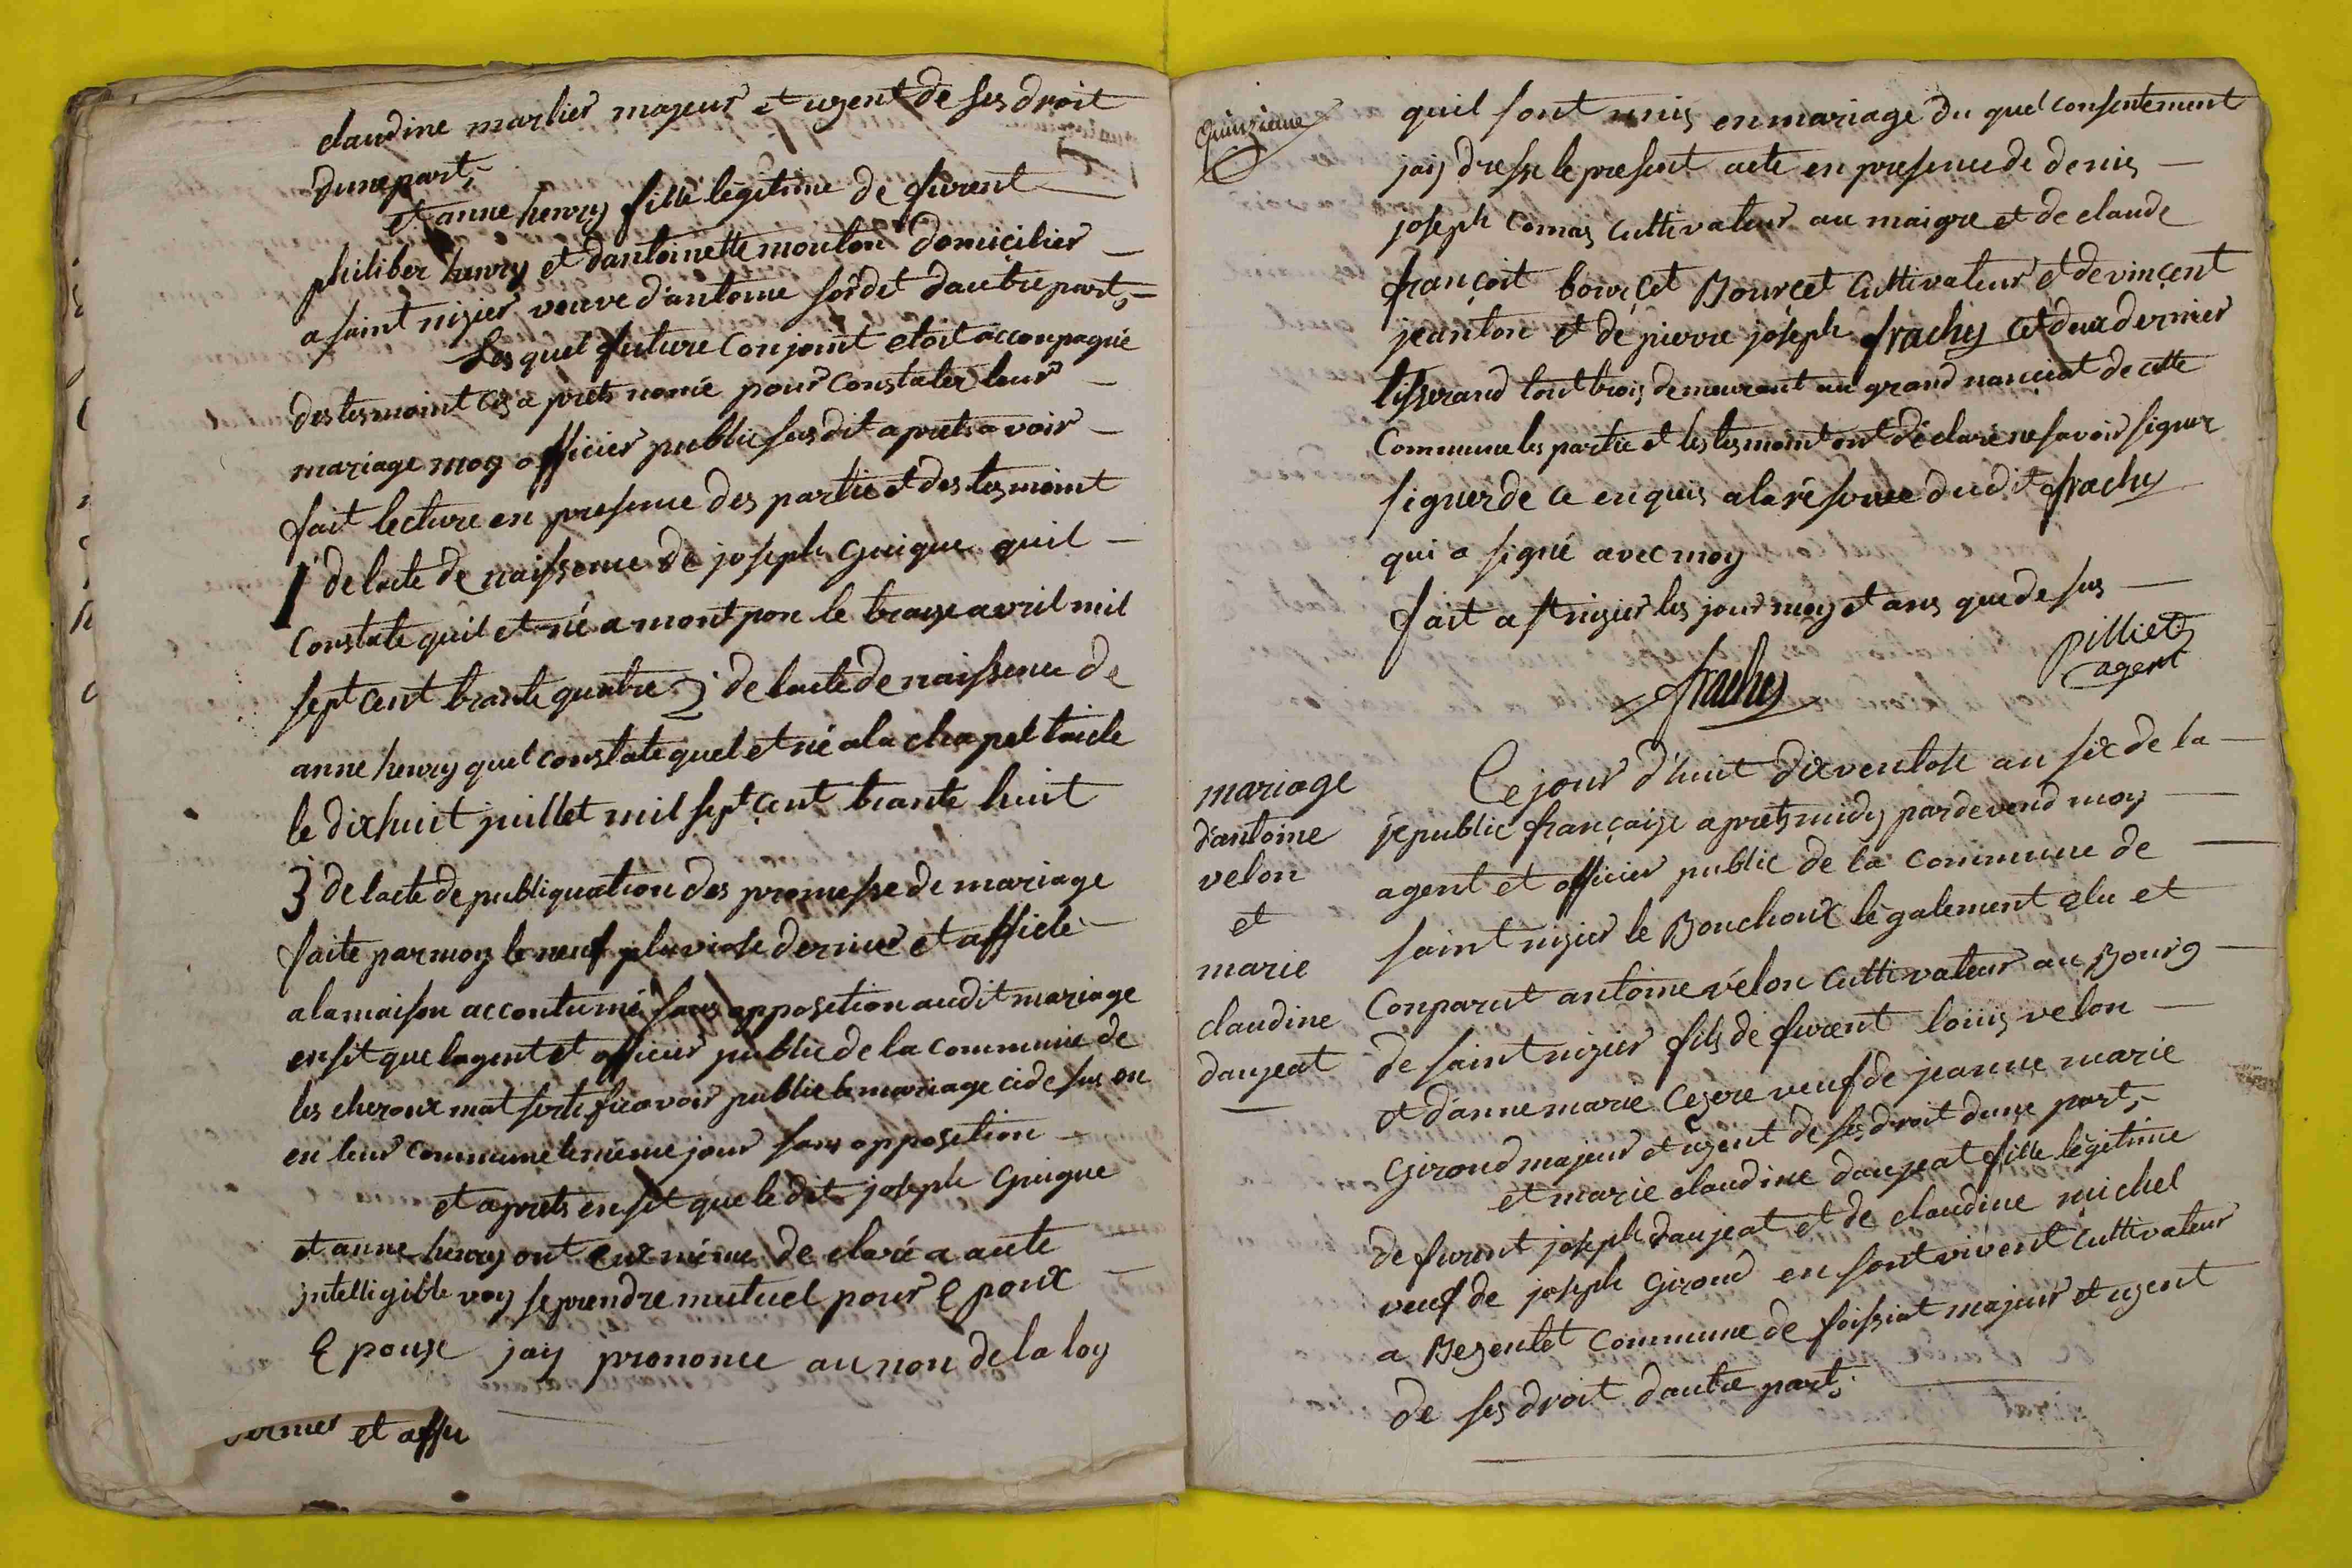 claudine marlier majeur et usent de ses droit
dune part,
et anne henry fille légitime de furent
philiber henry et dantoinette moulon domicilier
a saint nizier veuve d'antoine sordet dautre part,
Les quel future Conjoint etoit accompagné
des tesmoint cy a prets nomé pour Constater leur
mariage moy officier public susdit aprets avoir
fait lecture en presence des partie et des tesmoint
1° de lacte de naissence de joseph Guigue quil
Constate quil et né a montpon le traize avril mil
sept cent trante quatre 2° de lacte de naissence de
anne henry quel constate quel et né a la chapel taicle
le dix huit juillet mil sept cent trante huit
3° de lacte de publiquation des promesse de mariage
faite par moy le neuf pluviose dernier et affiché
a la maison accoutumé sans opposition audit mariage
ensit que lagent et officier public de la commune de
les cheroux mat sertifie avoir publie le mariage cidesus en
en leur commune le même jour sans opposition
et aprets ensit que le dit joseph Guigue
et anne henry ont eux même declaré a aute
intelligible voy se prendre mutuel pour Epoux
Epouse jay prononce au non de la loy
dernier et affu
Quinzieme
quil sont unis en mariage du quel consentement
jay dresse le present acte en presence de denis
joseph Comas Cultivateur au maigre et de claude
françoit bourcet Bourcet Cultivateur et de vincent
jeanton et de pierre joseph frachy cet deux dernier
tisserand tout trois demeurant au grand nancuat de cette
Commune les partie et les tesmoint ont déclaré ne savoir signer
signer de ce enquis a la résonce dudit frachy
qui a signé avec moy
fait a st nizier les jour moy et ans que desus
frachy
Pilliet
agent
mariage
d'antoine
velon
et
marie
claudine
daujeat
Ce jour d'huit dix ventose an six de la
republic française aprets midy pardevend moy
agent et officier public de la commune de
saint nizier le Bouchoux légalement élu et
Conparut antoine vélon Cultivateur au Bourg
de saint nizier fils de furent louis velon
et d'anne marie Cezere veuf de jeanne marie
Giroud majeur et usent de ses droit dune part,
et marie claudine daujeat fille légitime
de furent joseph daujeat et de claudine michel
veuf de joseph Giroud en sont vivent Cultivateur
a Bezentet Commune de foissiat majeur et usent
de ses droit dautre part,